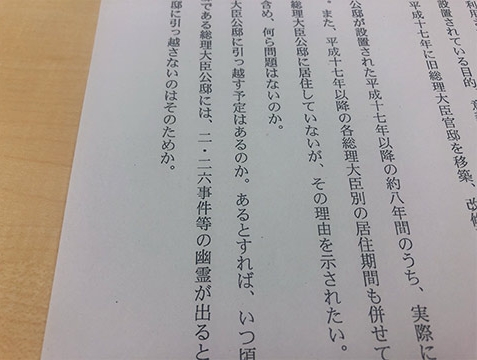 利用
設置されている目的、意
平成十七年に旧総理大臣官邸を移築、改修
公邸が設置された平成十七年以降の約八年間のうち、実際に
。また、平成十七年以降の各総理大臣別の居住期間も併せて
総理大臣公邸に居住していないが、その理由を示されたい。
含め、何ら問題はないのか。
大臣公邸に引っ越す予定はあるのか。あるとすれば、いつ頃
である総理大臣公邸には、二・二六事件等の幽霊が出ると
邸に引っ越さないのはそのためか。